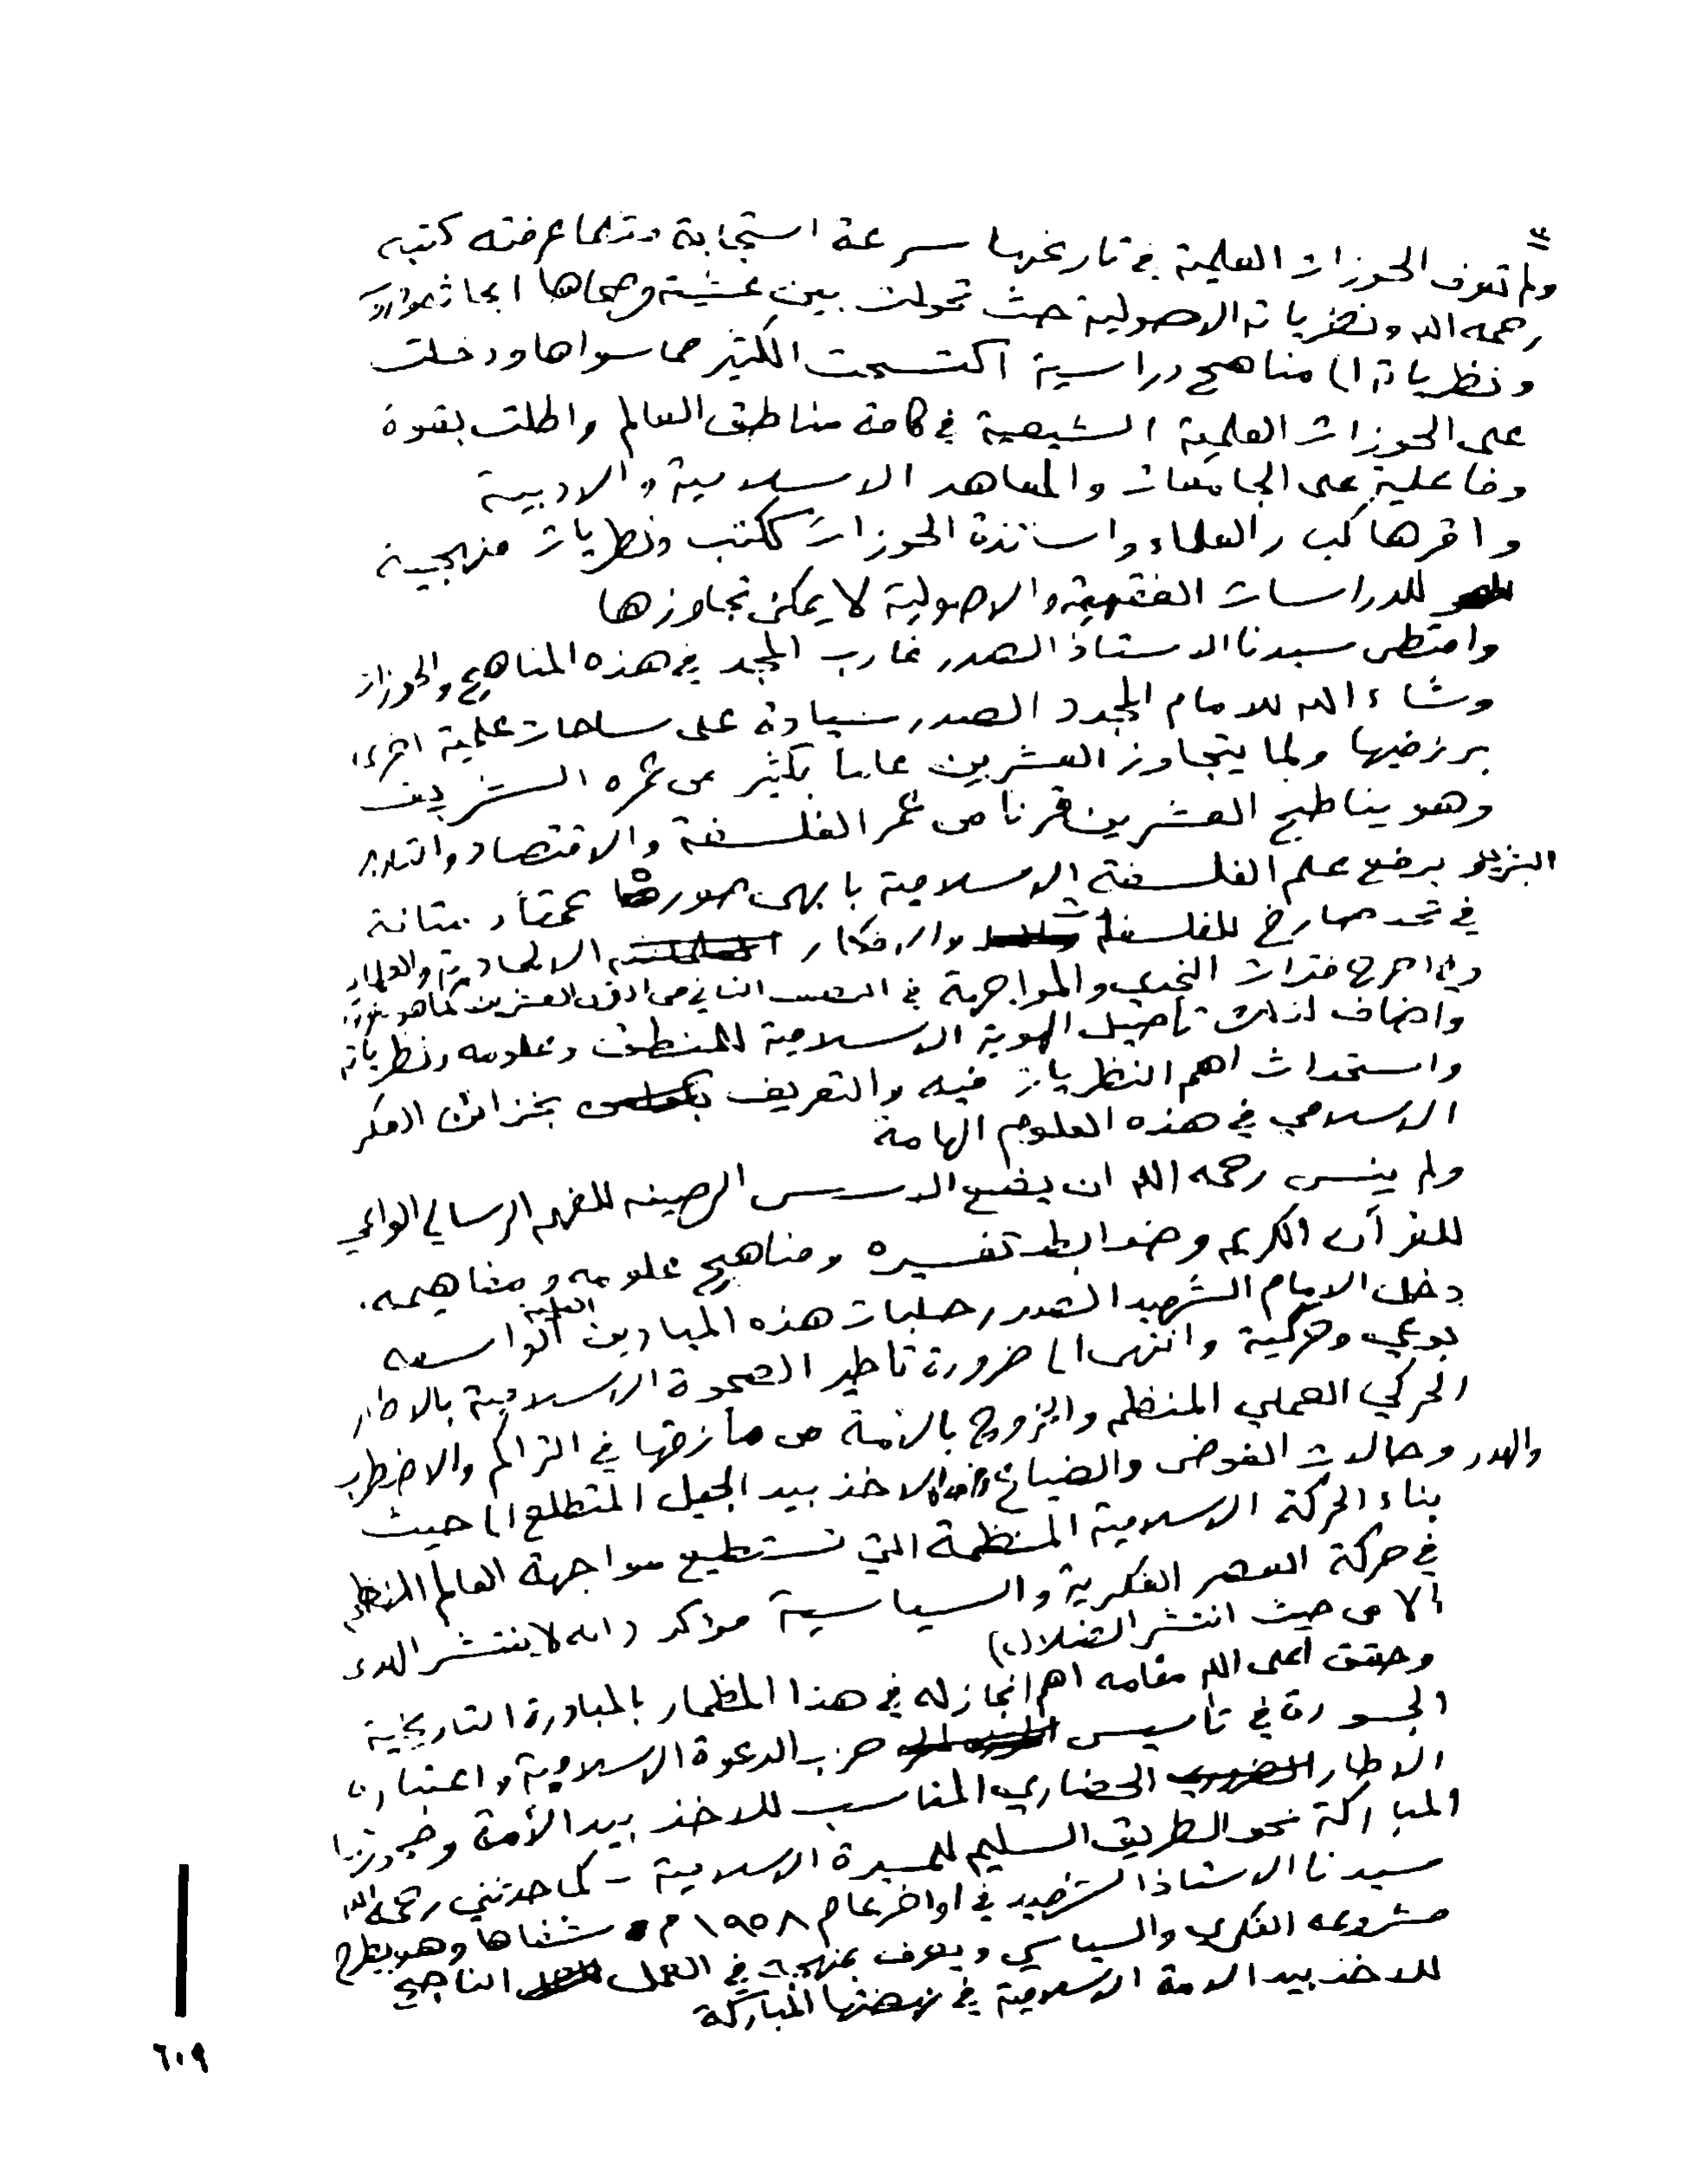 ٣
ولم تعرف الحوزات العلمية في تاريخها سرعة استجابة مثلما عرفته كتبه
رحمه الله ونظرياته الاصولية حيث تحولت بين عشية وضحاها ابحاثه
ونظرياته الى مناهج دراسية اكتسحت الكثير مما سواها ودخلت
على الحوزات العلمية الشيعية في كافة مناطق العالم واطلت بقوة
وفاعلية على الجامعات والمعاهد الاسلامية والادبية
واقرها كبار العلماء واساتذة الحوزات ككتب ونظريات منهجية
للدراسات الفقهية والاصولية لا يمكن تجاوزها
وامتطى سيدنا الاستاذ الصدر غارب المجد في هذه المناهج والحوزات
وشاء الله للامام المجدد الصدر سيادة على ساحات علمية اخرى
برز فيها ولما يتجاوز العشرين عاماً بكثير من عمره الشريف
وهو يناطح العشرين قرنا من عمر الفلسفة والاقتصاد
برفع علم الفلسفة الاسلامية بابهى صورها عمقاً ومتانة
في تحد صارخ للفلسفات والافكار الالحادية
وفي احرج فترات التحدي والمواجهة في النصف الثاني من القرن العشرين كما هو
واضاف لذلك تأصيل الهوية الاسلامية للمنطق وعلومه ونظرياته
واستحداث اهم النظريات فيه والتعريف بخزائن الفكر
الاسلامي في هذه العلوم الهامة
ولم ينس رحمه الله ان يضع الاسس الرصينه للفهم الرسالي الواعي
للقرآن الكريم وضوابط تفسيره ومناهج علومه ومفاهيمه.
دخل الامام الشهيد الصدر حلبات هذه الميادين العلمية الواسعه
بوعي وحركية وانتهى الى ضرورة تاطير الصحوة الاسلامية بالاطار
الحركي العملي المنظم والخروج بالامة من مأزقها في التراكم والاضطراب
والهدر وحالات الفوضى والضياع والاخذ بيد الجيل المتطلع الى حيث
بناء الحركة الاسلامية المنظمة التي تستطيع مواجهة العالم المنظم
في حركة العصر الفكرية والسياسية مؤكد (انه لا ينتشر الهدى
الا من حيث انتشر الضلال)
وحقق أعلى الله مقامه اهم انجاز له في هذا المظمار بالمبادرة التاريخية
الجسورة في تاسيس حزب الدعوة الاسلامية واعتباره
الاطار الحضاري المناسب للاخذ بيد الأمة
المباركة نحو الطريق السليم للمسيرة الاسلامية - كما حدثني رحمه الله
سيدنا الاستاذ الشهيد في اواخر عام ١٩٥٨م شفاها وهو يطرح
مشروعه الفكري والسياسي ويعرف بمنهجه في العمل الناجح
للاخذ بيد الامة الاسلامية في نهضتها المباركة
٦٠٩